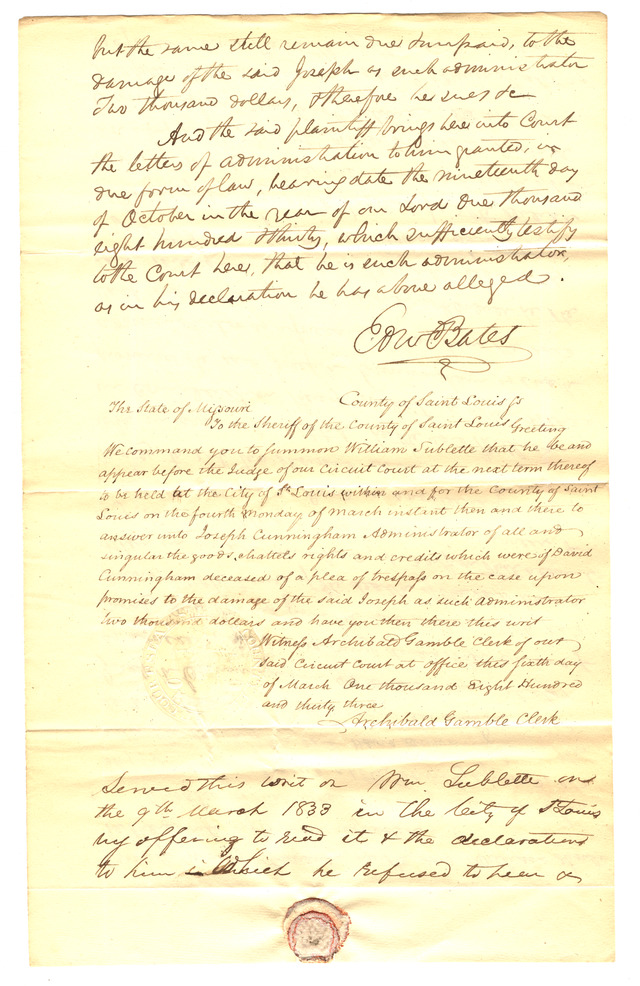 but the same still remain due & unpaid, to the
damage of the said Joseph as such administrator
Two thousand dollars, & therefore he sues &c
And the said plaintiff brings here into Court
the letters of administration to him granted, in
due form of law, bearing date the nineteenth day
of October in the year of our Lord One thousand
eight hundred & thirty, which sufficiently testify
to the Court here, that he is such administrator,
as in his declaration he has above alleged.
Edw Bates
The State of Missouri County of Saint Louis Ss
To the Sheriff of the County of Saint Louis Greeting
We command you to summon William Sublette that he be and
appear before the Judge of our Circuit Court at the next term thereof
to be held at the City of St Louis within and for the County of Saint
Louis on the fourth Monday of March instant then and there to
answer unto Joseph Cunningham Administrator of all and
singular the goods chattels rights and credits which were of David
Cunningham deceased of a plea of trespass on the case upon
promises to the damage of the said Joseph as such Administrator
two thousand dollars and have you then there this writ
Witness Archibald Gamble Clerk of our
said Circuit Court at office this sixth day
of March One thousand Eight Hundred
and thirty three
Archibald Gamble Clerk
Served this writ on Wm. Sublette on
the 9th March 1833 in the City of St Louis
by offering to read it & the declaration
to him which he refused to hear